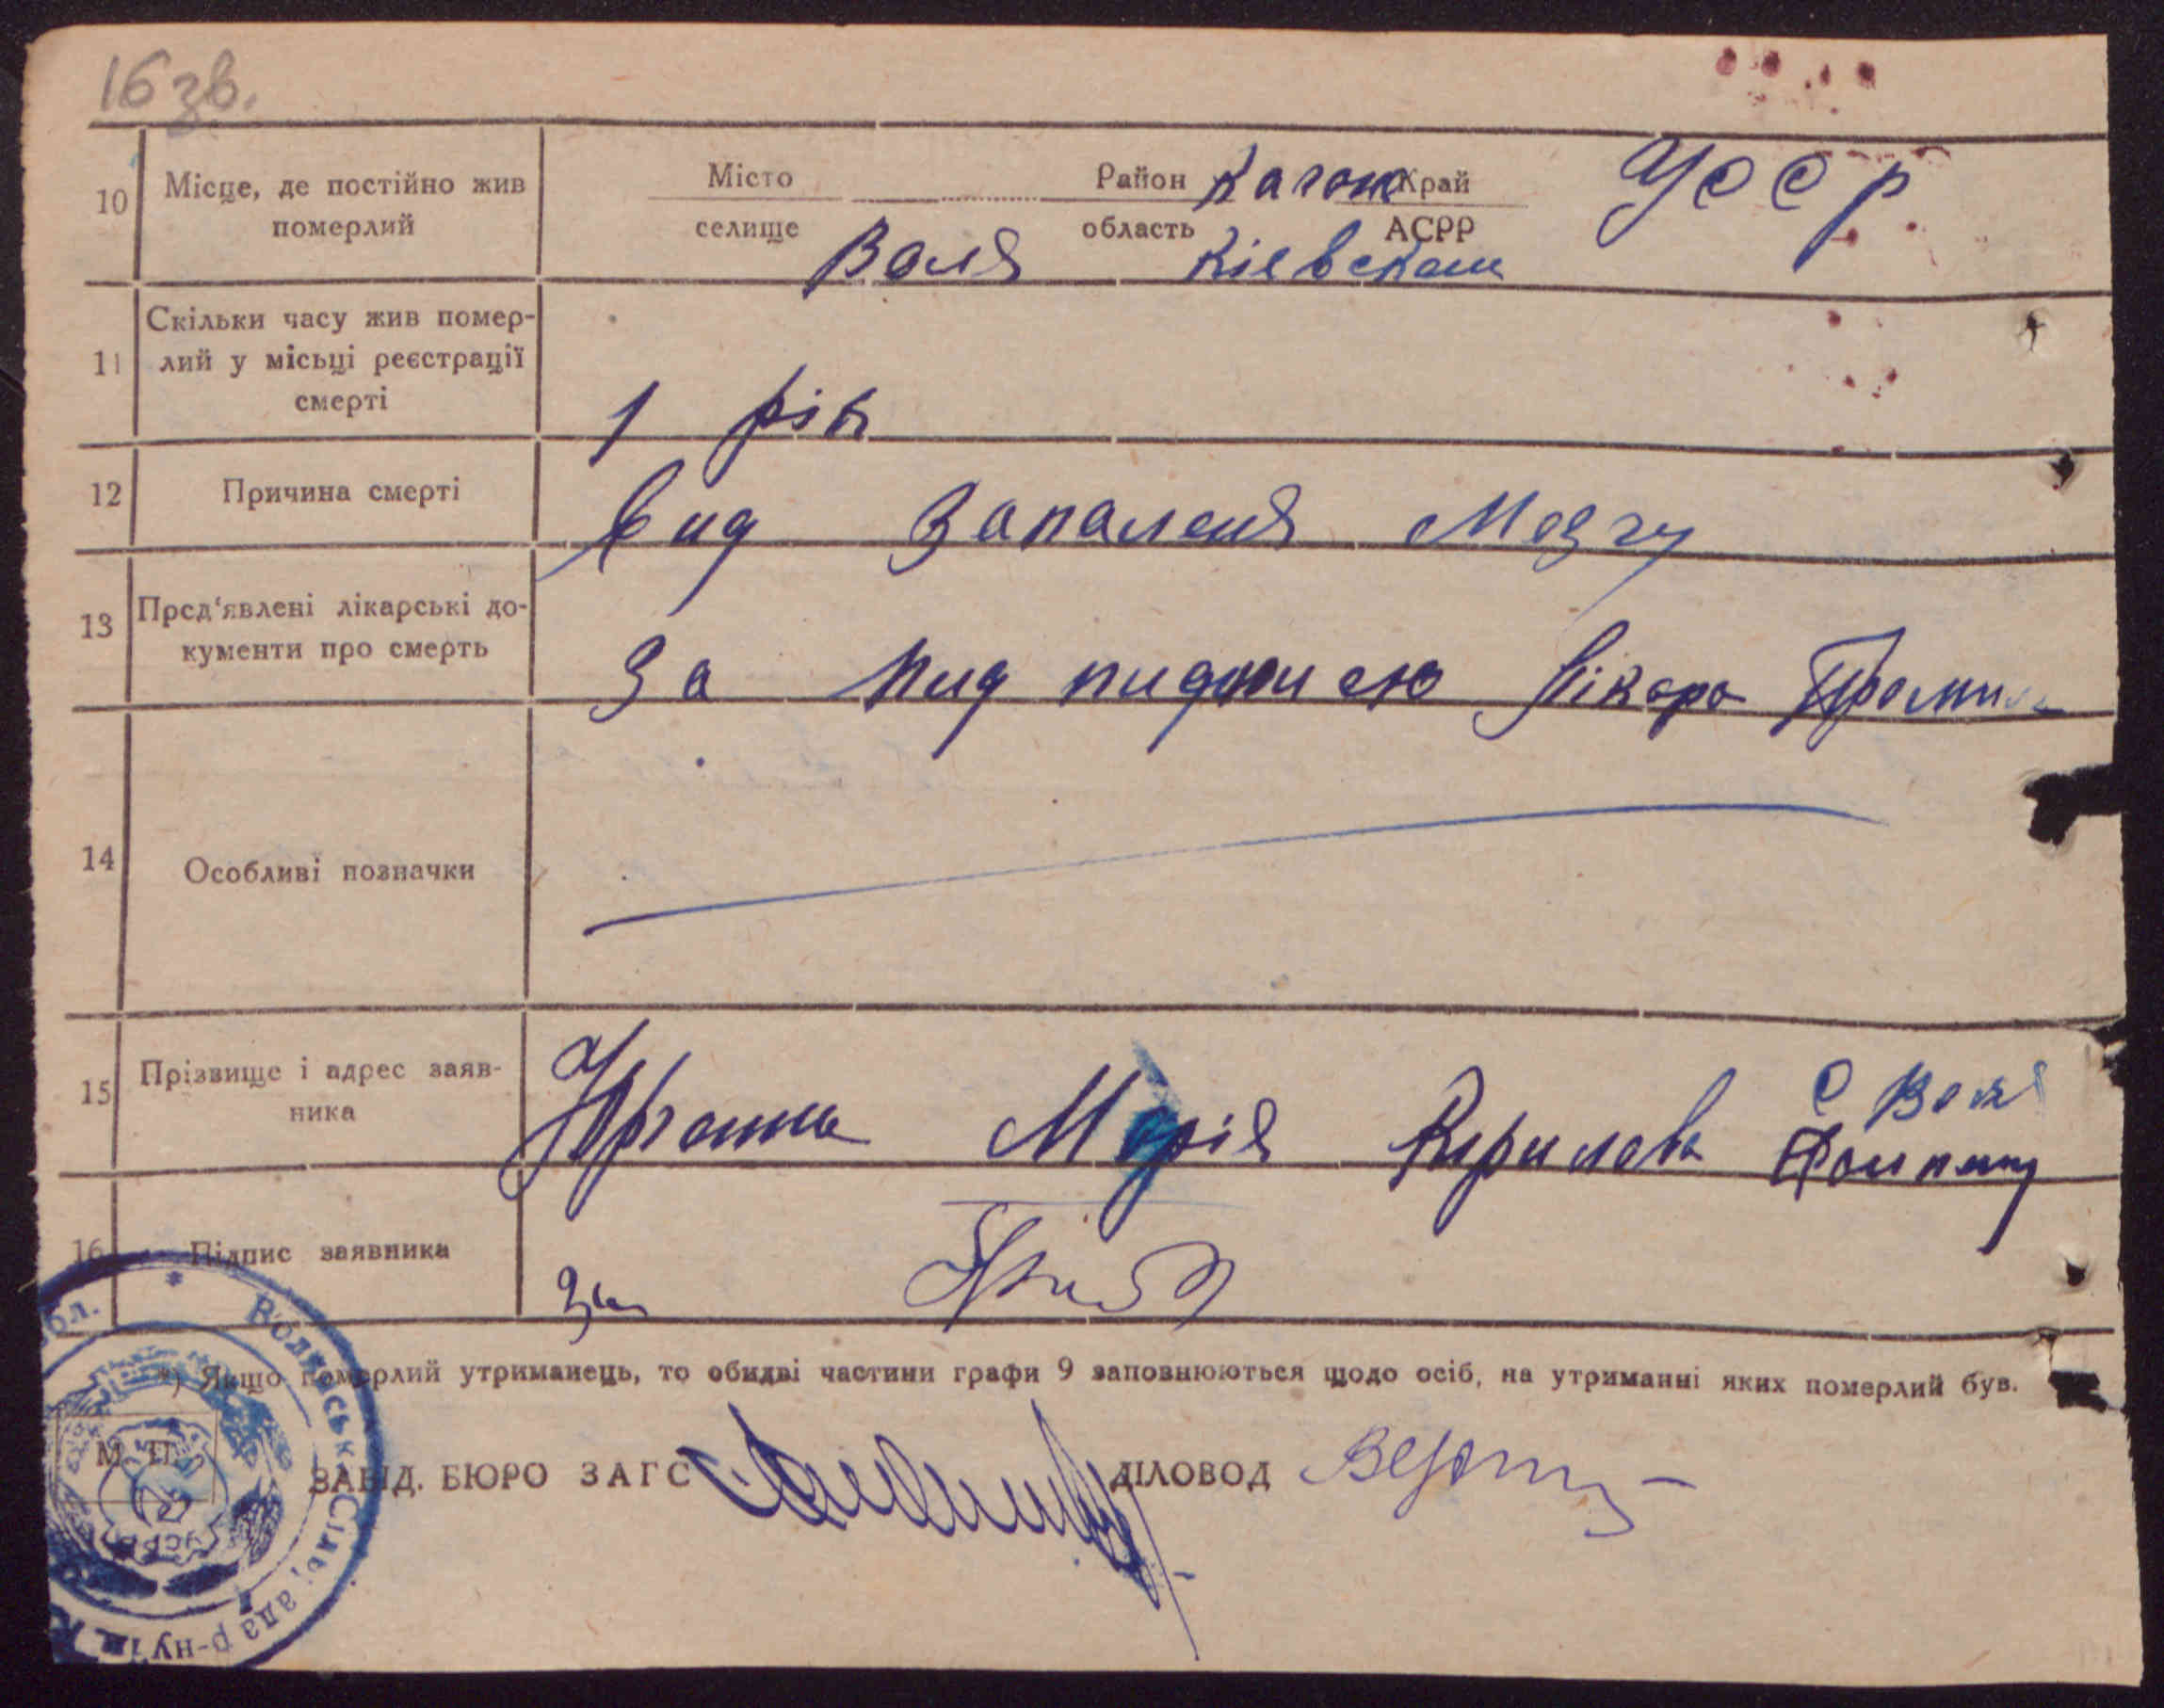 16 зв.
10 Місце, де постійно жив померлий
Місто Район Каган Край УССР
селище Воля область Кіевскаи АСРР
11 Скільки часу жив помер-
лий у місьці реєстрації
смерті
1 рік
12 Причина смерті
вид Запаленя Мозгу
13 Пред'явлені лікарські до-
кументи про смерть
За пид пидписю лікаря
14 Особливі позначки
15 Прізвище і адрес заяв-
ника
Марія Кирилова
с Воля
16 Підпис заявника
за
*) Якщо померлий утриманець, то обидві частини графи 9 заповнюються щодо осіб, на утриманні яких померлий був.
М. П.
ЗАВІД. БЮРО ЗАГС ДІЛОВОД
обл. * Волянська Сіль ада р-ну
УСРР